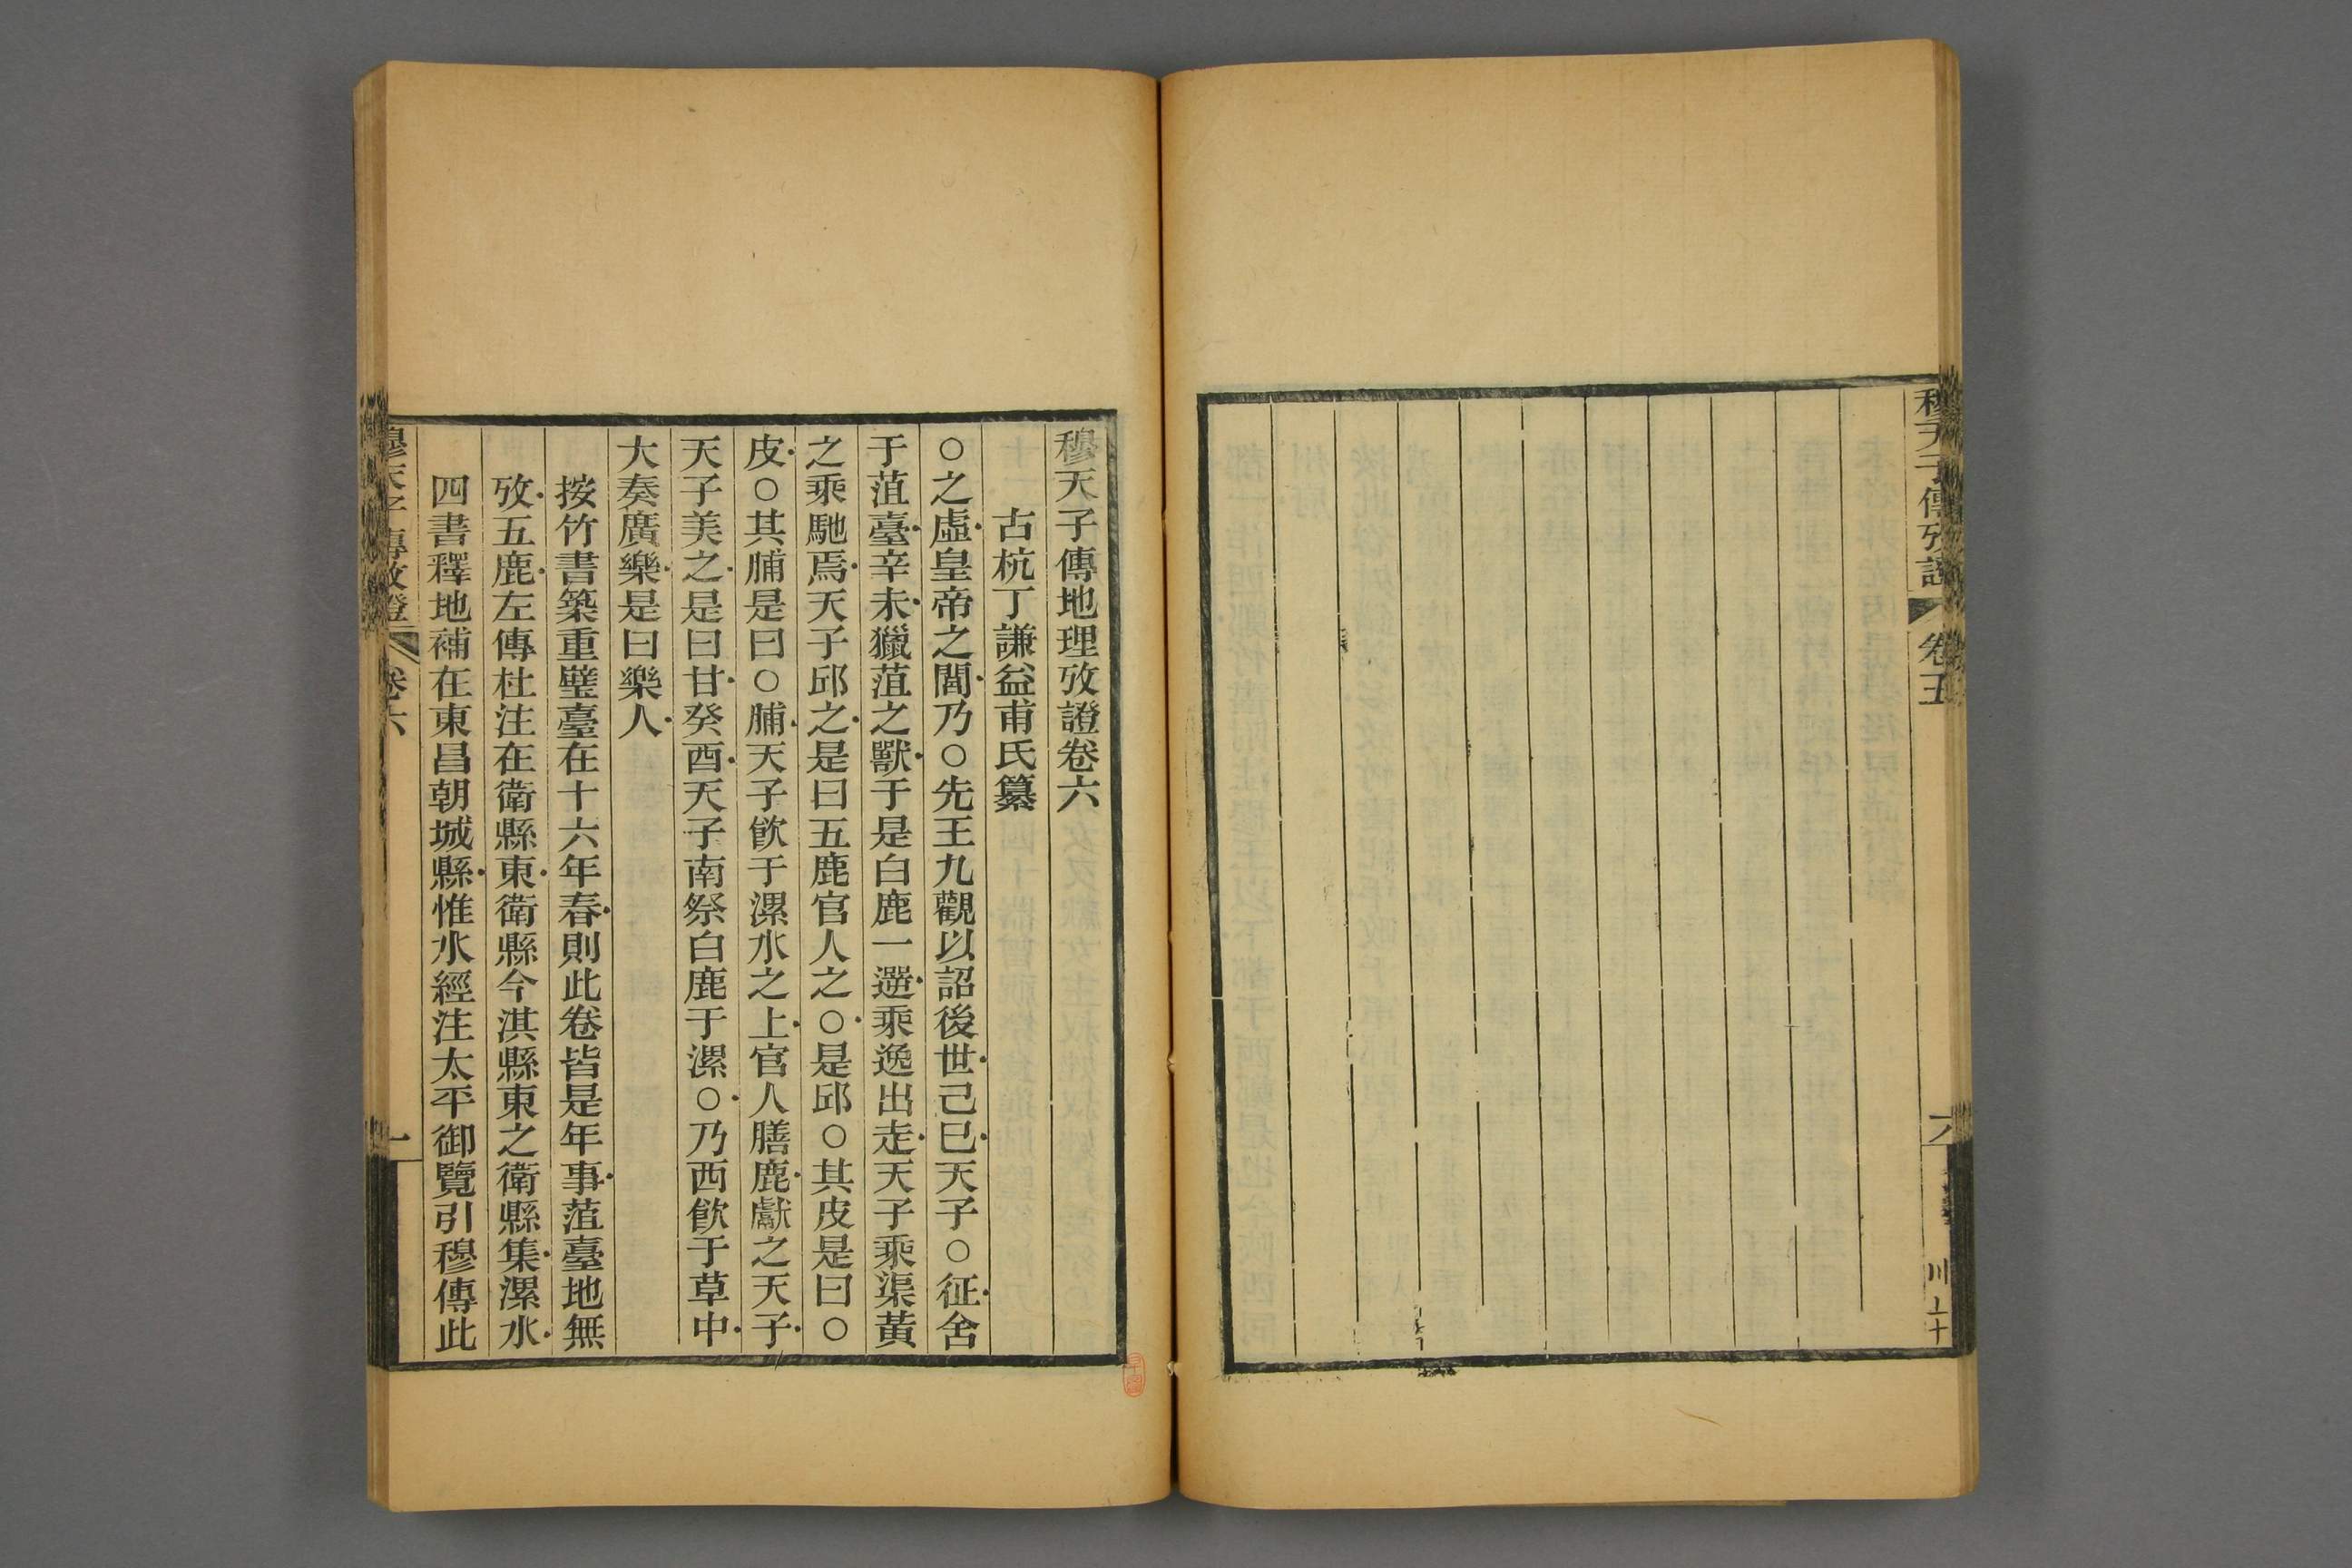 穆天子傳攷證
卷五
六
穆天子傳地理攷證卷六
古杭丁謙益甫氏纂
○之虛皇帝之閭乃○先王九觀以詔後世己巳天子○征舍
于菹臺辛未獵菹之獸于是白鹿一遻乘逸出走天子乘渠黃
之乘馳焉天子邱之是曰五鹿官人之○是邱○其皮是曰○
皮○其脯是曰○脯天子飲于漯水之上官人膳鹿獻之天子
天子美之是曰甘癸酉天子南祭白鹿于漯○乃西飲于草中
大奏廣樂是曰樂人
按竹書築重璧臺在十六年春則此卷皆是年事菹臺地無
攷五鹿左傳杜注在衛縣東衛縣今淇縣東之衛縣集漯水
四書釋地補在東昌朝城縣惟水經注太平御覽引穆傳此
穆天子傳攷證
卷六
一